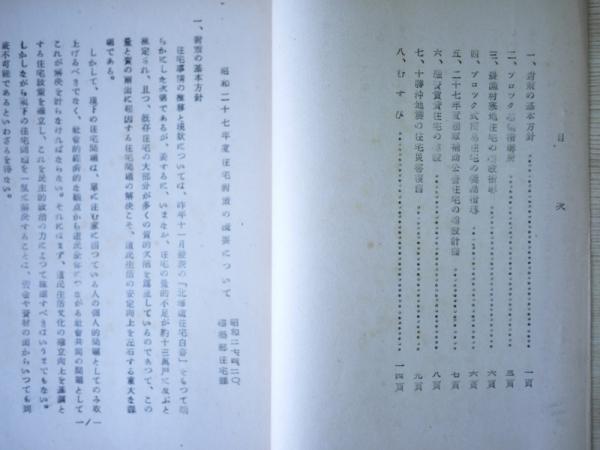 目次
一、対策の基本方針 一頁
二、ブロツク 三頁
三、農漁村 住宅の 六頁
四、ブロツク式 住宅の 指導 六頁
五、二十七年度国庫補助公営住宅の建設計画 七頁
六、融資 住宅の 八頁
七、十勝沖地震の住宅災害復旧 九頁
八、むすび 一四頁
昭和二十七年度住宅対策の について
昭和二七、四、二〇
建築部住宅課
一、対策の基本方針
住宅事情の推移と現状については、昨年十一月発表の「北海道住宅白書」をもつて明
らかにした次第であるが、要するに、いまなお、住宅の量的不足が約十三万戸に及ぶと
推定され、且つ、既存住宅の大部分が多くの質的欠陥を露呈しているのであつて、この
量と質の両面に起因する住宅問題の解決こそ、道民生活の安定向上を左右する重大な課
題である。
しかして、現下の住宅問題は、単に住む家に困つている人の個人的問題としてのみ取
上げるべきでなく、社会的経済的な観点から道民全体につながる社会共同の問題として
これが解決を計らなければならない。それにはまず、道民生活文化の確立向上を基調と
する住宅政策を確立し、これを民主的政治の力によつて推進すべきはいうまでもない。
しかしながら現下の住宅問題を一気に解決することは、資金や資材の面からいつても到
底不可能であるといわざるを得ない。
―1―